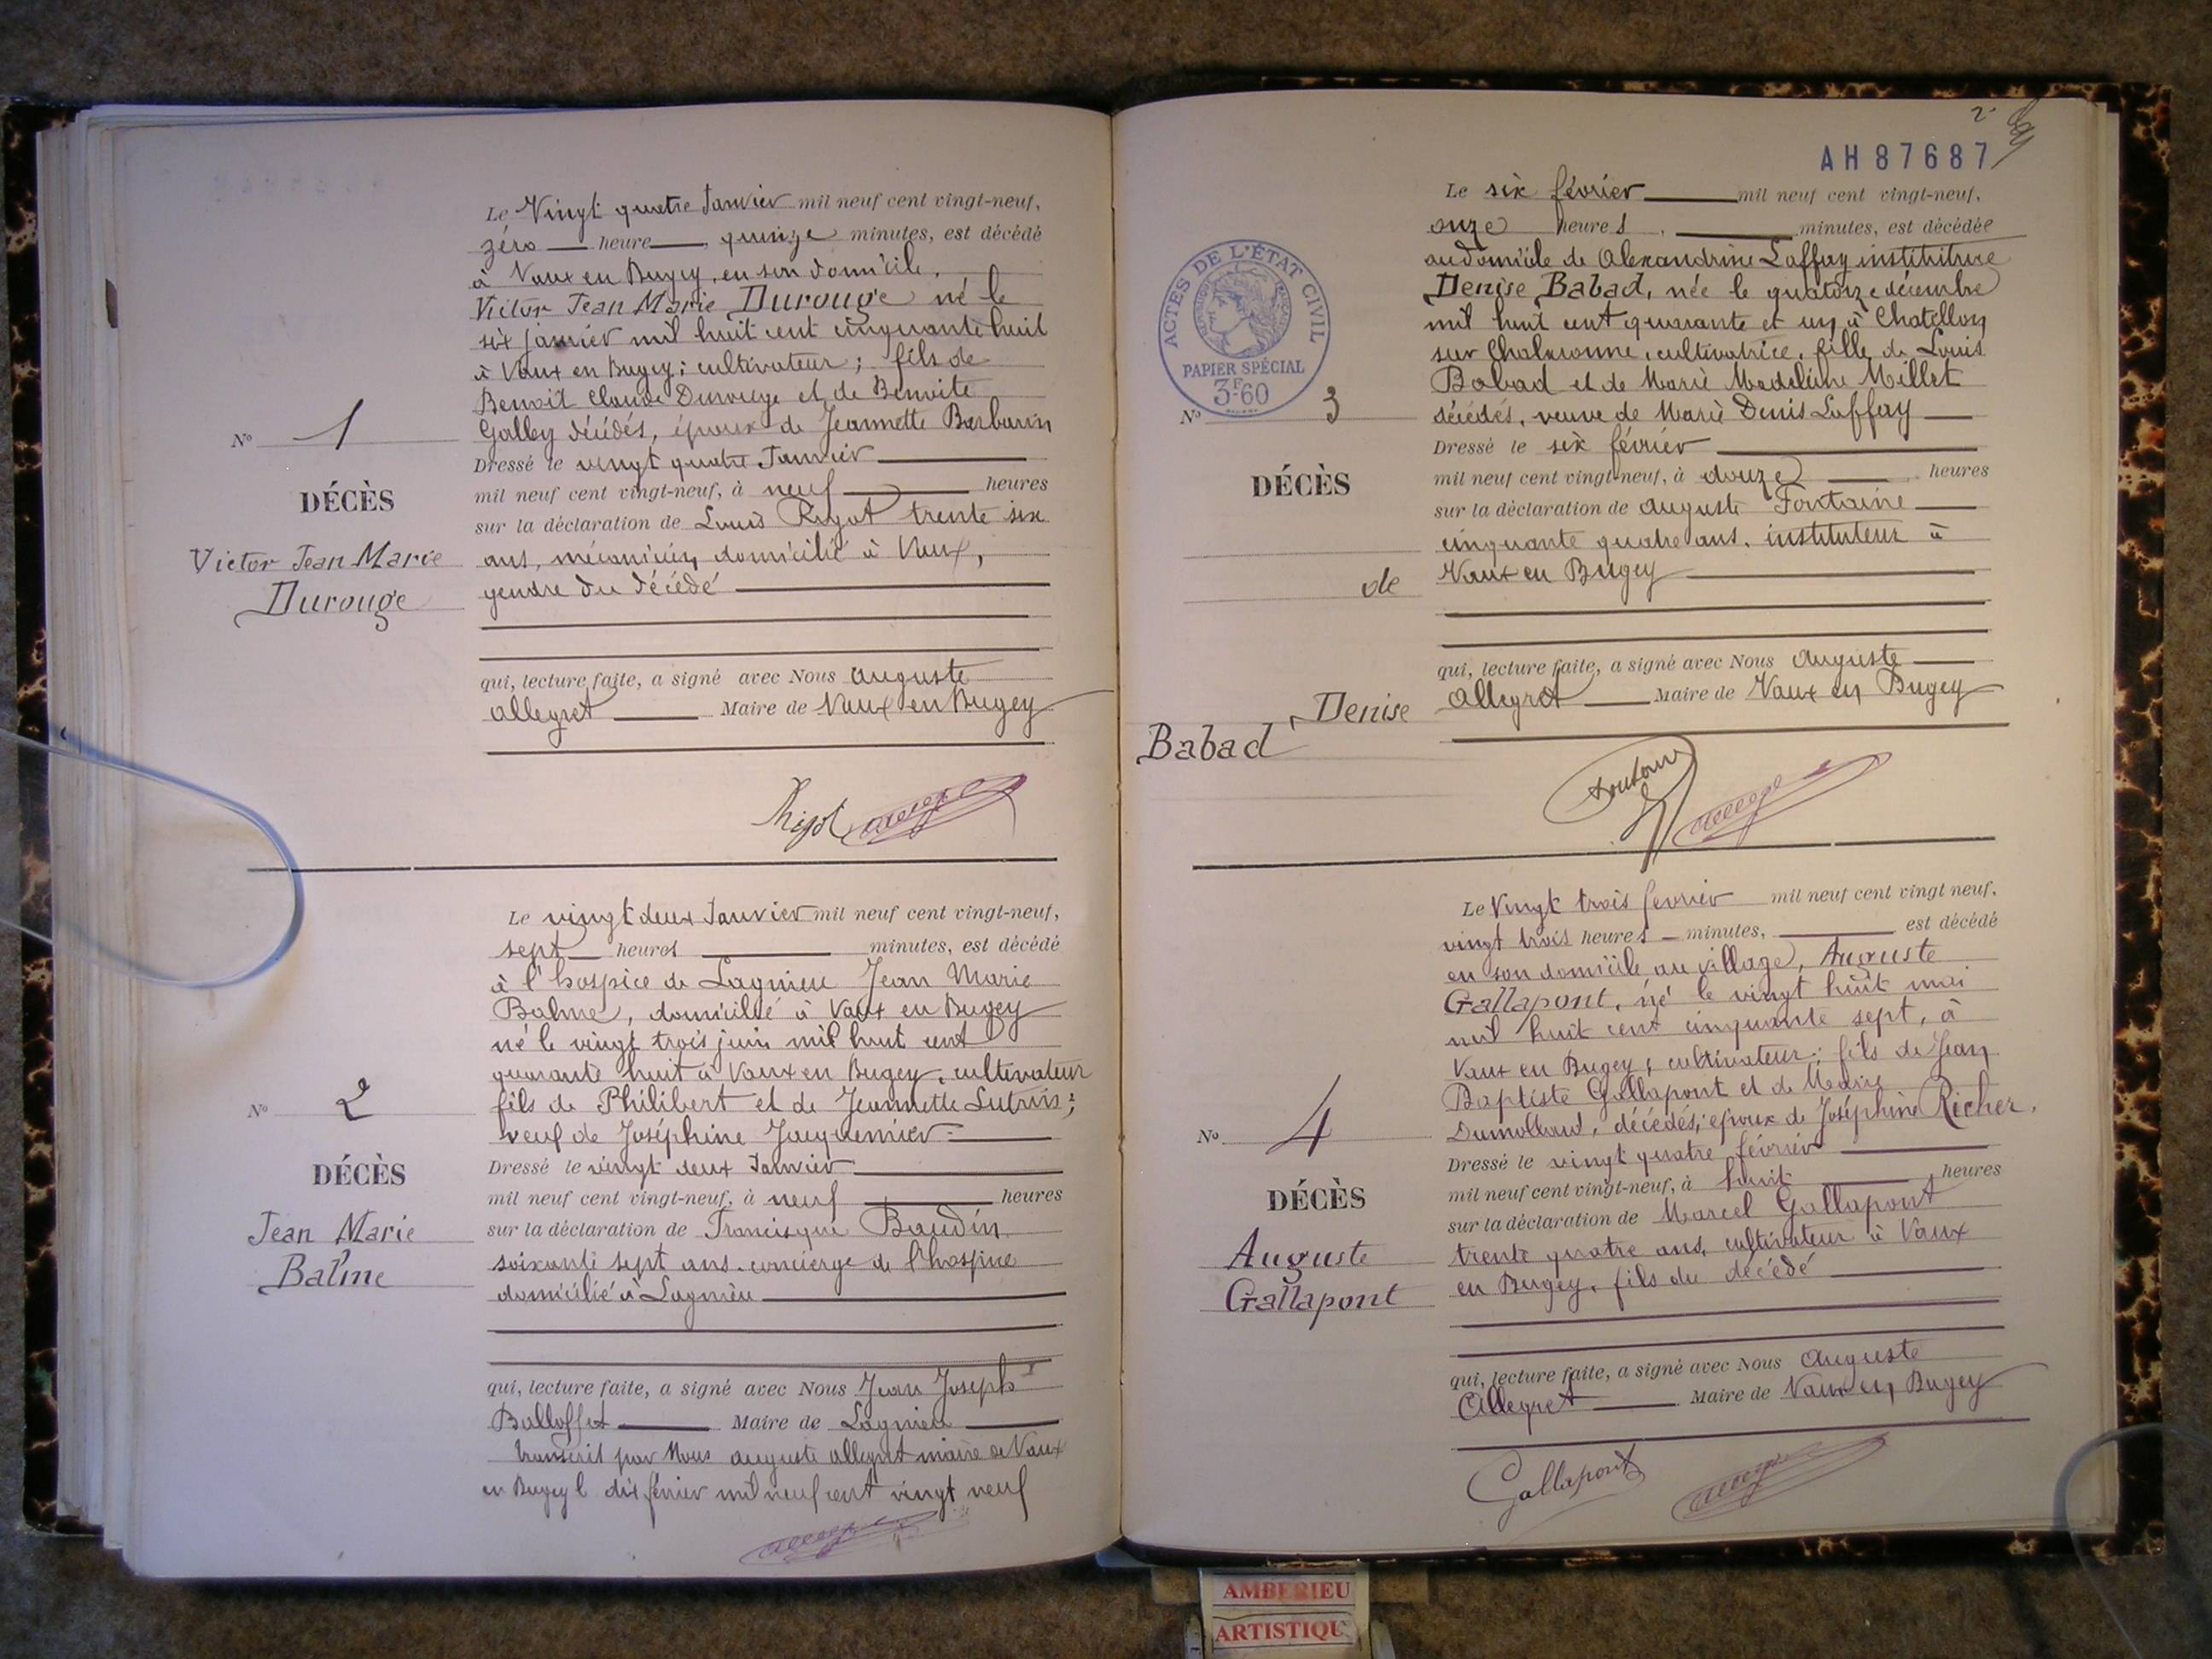 Le Vingt quatre Janvier mil neuf cent vingt-neuf,
zéro heure, quinze minutes, est décédé
à Vaux en Bugey, en son domicile,
Victor Jean Marie Durouge né le
six janvier mil huit cent cinquante huit
à Vaux en Bugey; cultivateur; fils de
Benoit Claude Durouge et de Benoite
Galley décédés, époux de Jeannette Barbarin
N° 1
Dressé le vingt quatre Janvier
mil neuf cent vingt-neuf, à neuf heures
DÉCÈS
sur la déclaration de Louis Rigot trente six
Victor Jean Marie
Durouge
ans, mécanicien domicilié à Vaux,
gendre du décédé
qui, lecture faite, a signé avec Nous Auguste
Allegret Maire de Vaux en Bugey
Rigot
Le vingt deux Janvier mil neuf cent vingt-neuf,
sept heures minutes, est décédé
à l'hospice de Lagnieu Jean Marie
Balme, domicilié à Vaux en Bugey
né le vingt trois juin mil huit cent
quarante huit à Vaux en Bugey, cultivateur
N° 2
fils de Philibert et de Jeannette
veuf de Joséphine Jacquemier
DÉCÈS
Dressé le vingt deux Janvier
mil neuf cent vingt-neuf, à neuf heures
Jean Marie
Balme
sur la déclaration de Francisque Baudin
soixante sept ans, concierge de l'hospice
domicilié à Lagnieu
qui, lecture faite, a signé avec Nous Jean Joseph
Balloffet Maire de Lagnieu
Transcrit par Nous Auguste Allegret maire de Vaux
en Bugey le dix février mil neuf cent vingt neuf
2
AH87687
ACTES DE L'ÉTAT CIVIL
PAPIER SPÉCIAL
3F60
Le six février mil neuf cent vingt-neuf,
onze heures, minutes, est décédée
au domicile de Alexandrine Laffay institutrice
Denise Babad, née le quatorze décembre
mil huit cent quarante et un à Chatillon
sur Chalaronne, cultivatrice, fille de Louis
Babad et de Marie Madeleine Millet
N° 3
décédés, veuve de Marie Denis Laffay
Dressé le six février
DÉCÈS
mil neuf cent vingt-neuf, à douze heures
sur la déclaration de Auguste Fontaine
cinquante quatre ans, instituteur à
de
Vaux en Bugey
qui, lecture faite, a signé avec Nous Auguste
Denise
Babad
Allegret Maire de Vaux en Bugey
Le Vingt trois février mil neuf cent vingt neuf,
vingt trois heures minutes, est décédé
en son domicile au village, Auguste
Gallapont, né le vingt huit mai
mil huit cent cinquante sept, à
Vaux en Bugey; cultivateur; fils de Jean
Baptiste Gallapont et de Marie
N° 4
Dumollard, décédés; époux de Joséphine Richer.
Dressé le vingt quatre février
DÉCÈS
mil neuf cent vingt-neuf, à huit heures
sur la déclaration de Marcel Gallapont
Auguste
Gallapont
trente quatre ans, cultivateur à Vaux
en Bugey, fils du décédé
qui, lecture faite, a signé avec Nous Auguste
Allegret Maire de Vaux en Bugey
Gallapont
AMBERIEU
ARTISTIQU